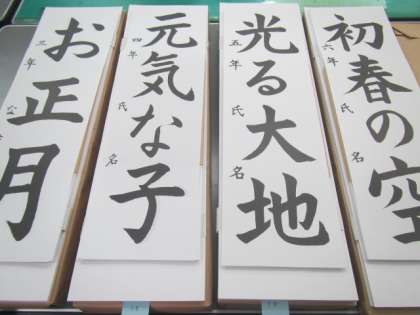 お正月
三年
元気な子
四年 氏名
光る大地
五年 氏名
初春の空
六年 氏名